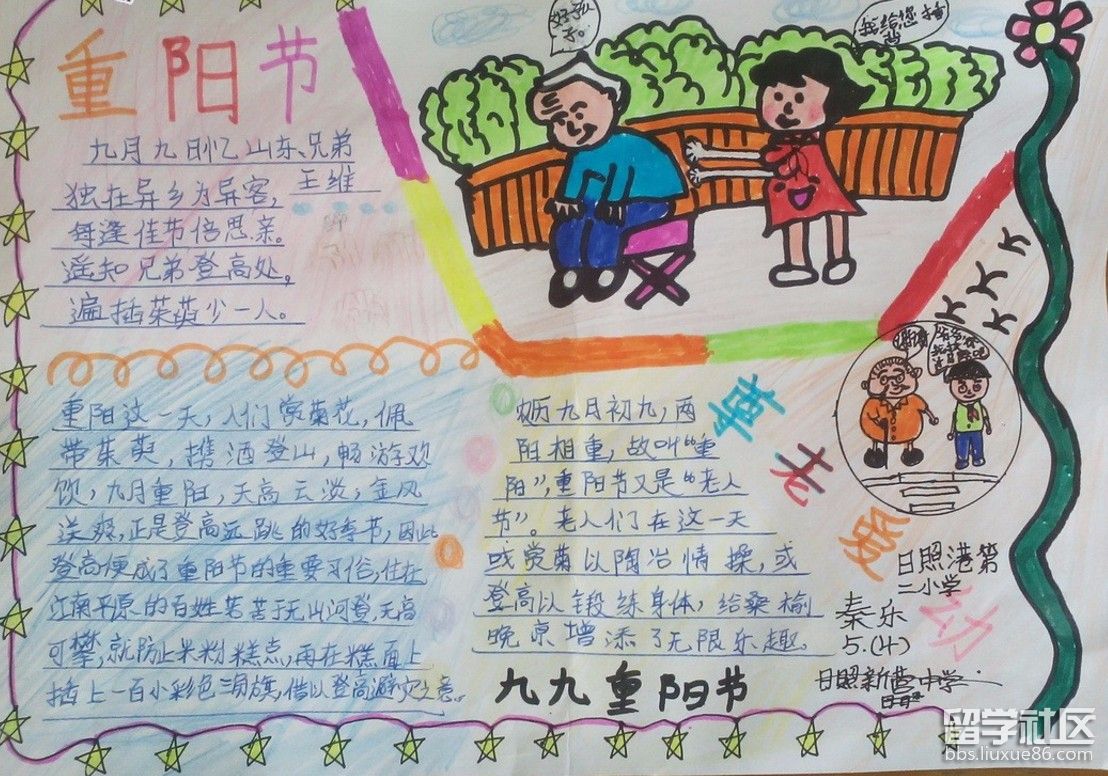 重阳节
九月九日忆山东兄弟
王维
独在异乡为异客,
每逢佳节倍思亲。
遥知兄弟登高处,
遍插茱萸少一人。
好孩
子。
我给您捶
重阳这一天,人们赏菊花,佩
带茱萸,携酒登山,畅游欢
饮,九月重阳,天高云淡,金风
送爽,正是登高远跳的好季节,因此
登高便成了重阳节的重要习俗,住在
江南平原的百姓苦苦于无山河登,无高
可攀,就防止米粉糕点,再在糕面上
插上一百小彩色三角旗,借以登高避灾之意。
九月初九,两
阳相重,故叫“重
阳”,重阳节又是“老人
节”。老人们在这一天
或赏菊以陶冶情操,或
登高以锻练身体,给桑榆
晚京增添了无限乐趣。
九九重阳节
尊老爱幼
大大大大
谢谢
日照港第
二小学
秦乐
5.(4)
日照新营中学
留学社区
bbs.liuxue86.com